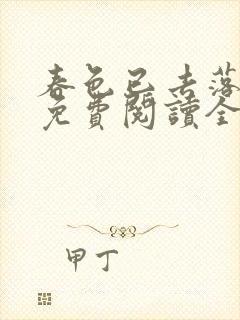 春色已去落
免費閱讀全
甲丁